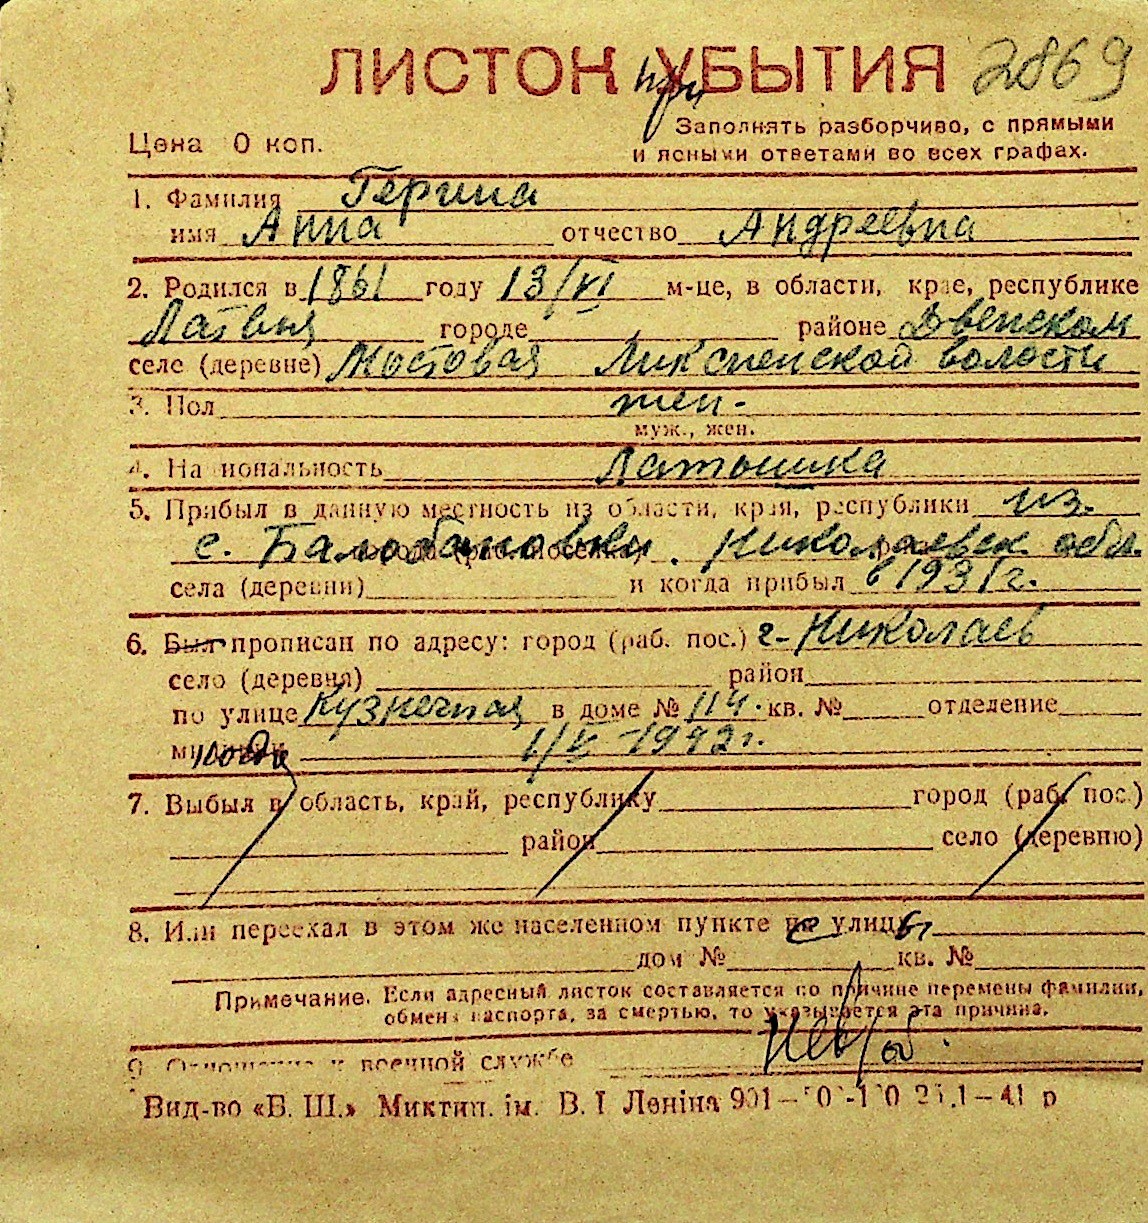 ЛИСТОК УБЫТИЯ 2869
при
Цена 0 коп.
Заполнять разборчиво, с прямыми
и ясными ответами во всех графах.
1. Фамилия Гергина
имя Анна отчество Андреевна
2. Родился в 1861 году 13/VI м-це, в области, крае, республике
Латвия городе районе Двенском
селе (деревне) Мостовая Ликсненской волости
3. Пол жен.
муж., жен.
4. Национальность Латышка
5. Прибыл в данную местность из области, края, республики из
с. Балабановки. Николаевск. обл.
села (деревни) и когда прибыл в 1931 г.
6. Был прописан по адресу: город (раб. пос.) г. Николаев
село (деревня) район
по улице Кузнечная в доме № 114. кв. № отделение
милиции 1/VI-1942 г.
7. Выбыл в область, край, республику город (раб. пос.)
район село (деревню)
8. Или переехал в этом же населенном пункте с улицы
дом № кв. №
Примечание. Если адресный листок составляется по причине перемены фамилии,
обмена паспорта, за смертью, то указывается эта причина.
9. Отношение к военной службе
Вид-во «Б. Ш.» Миктип. ім. В. І Леніна 901